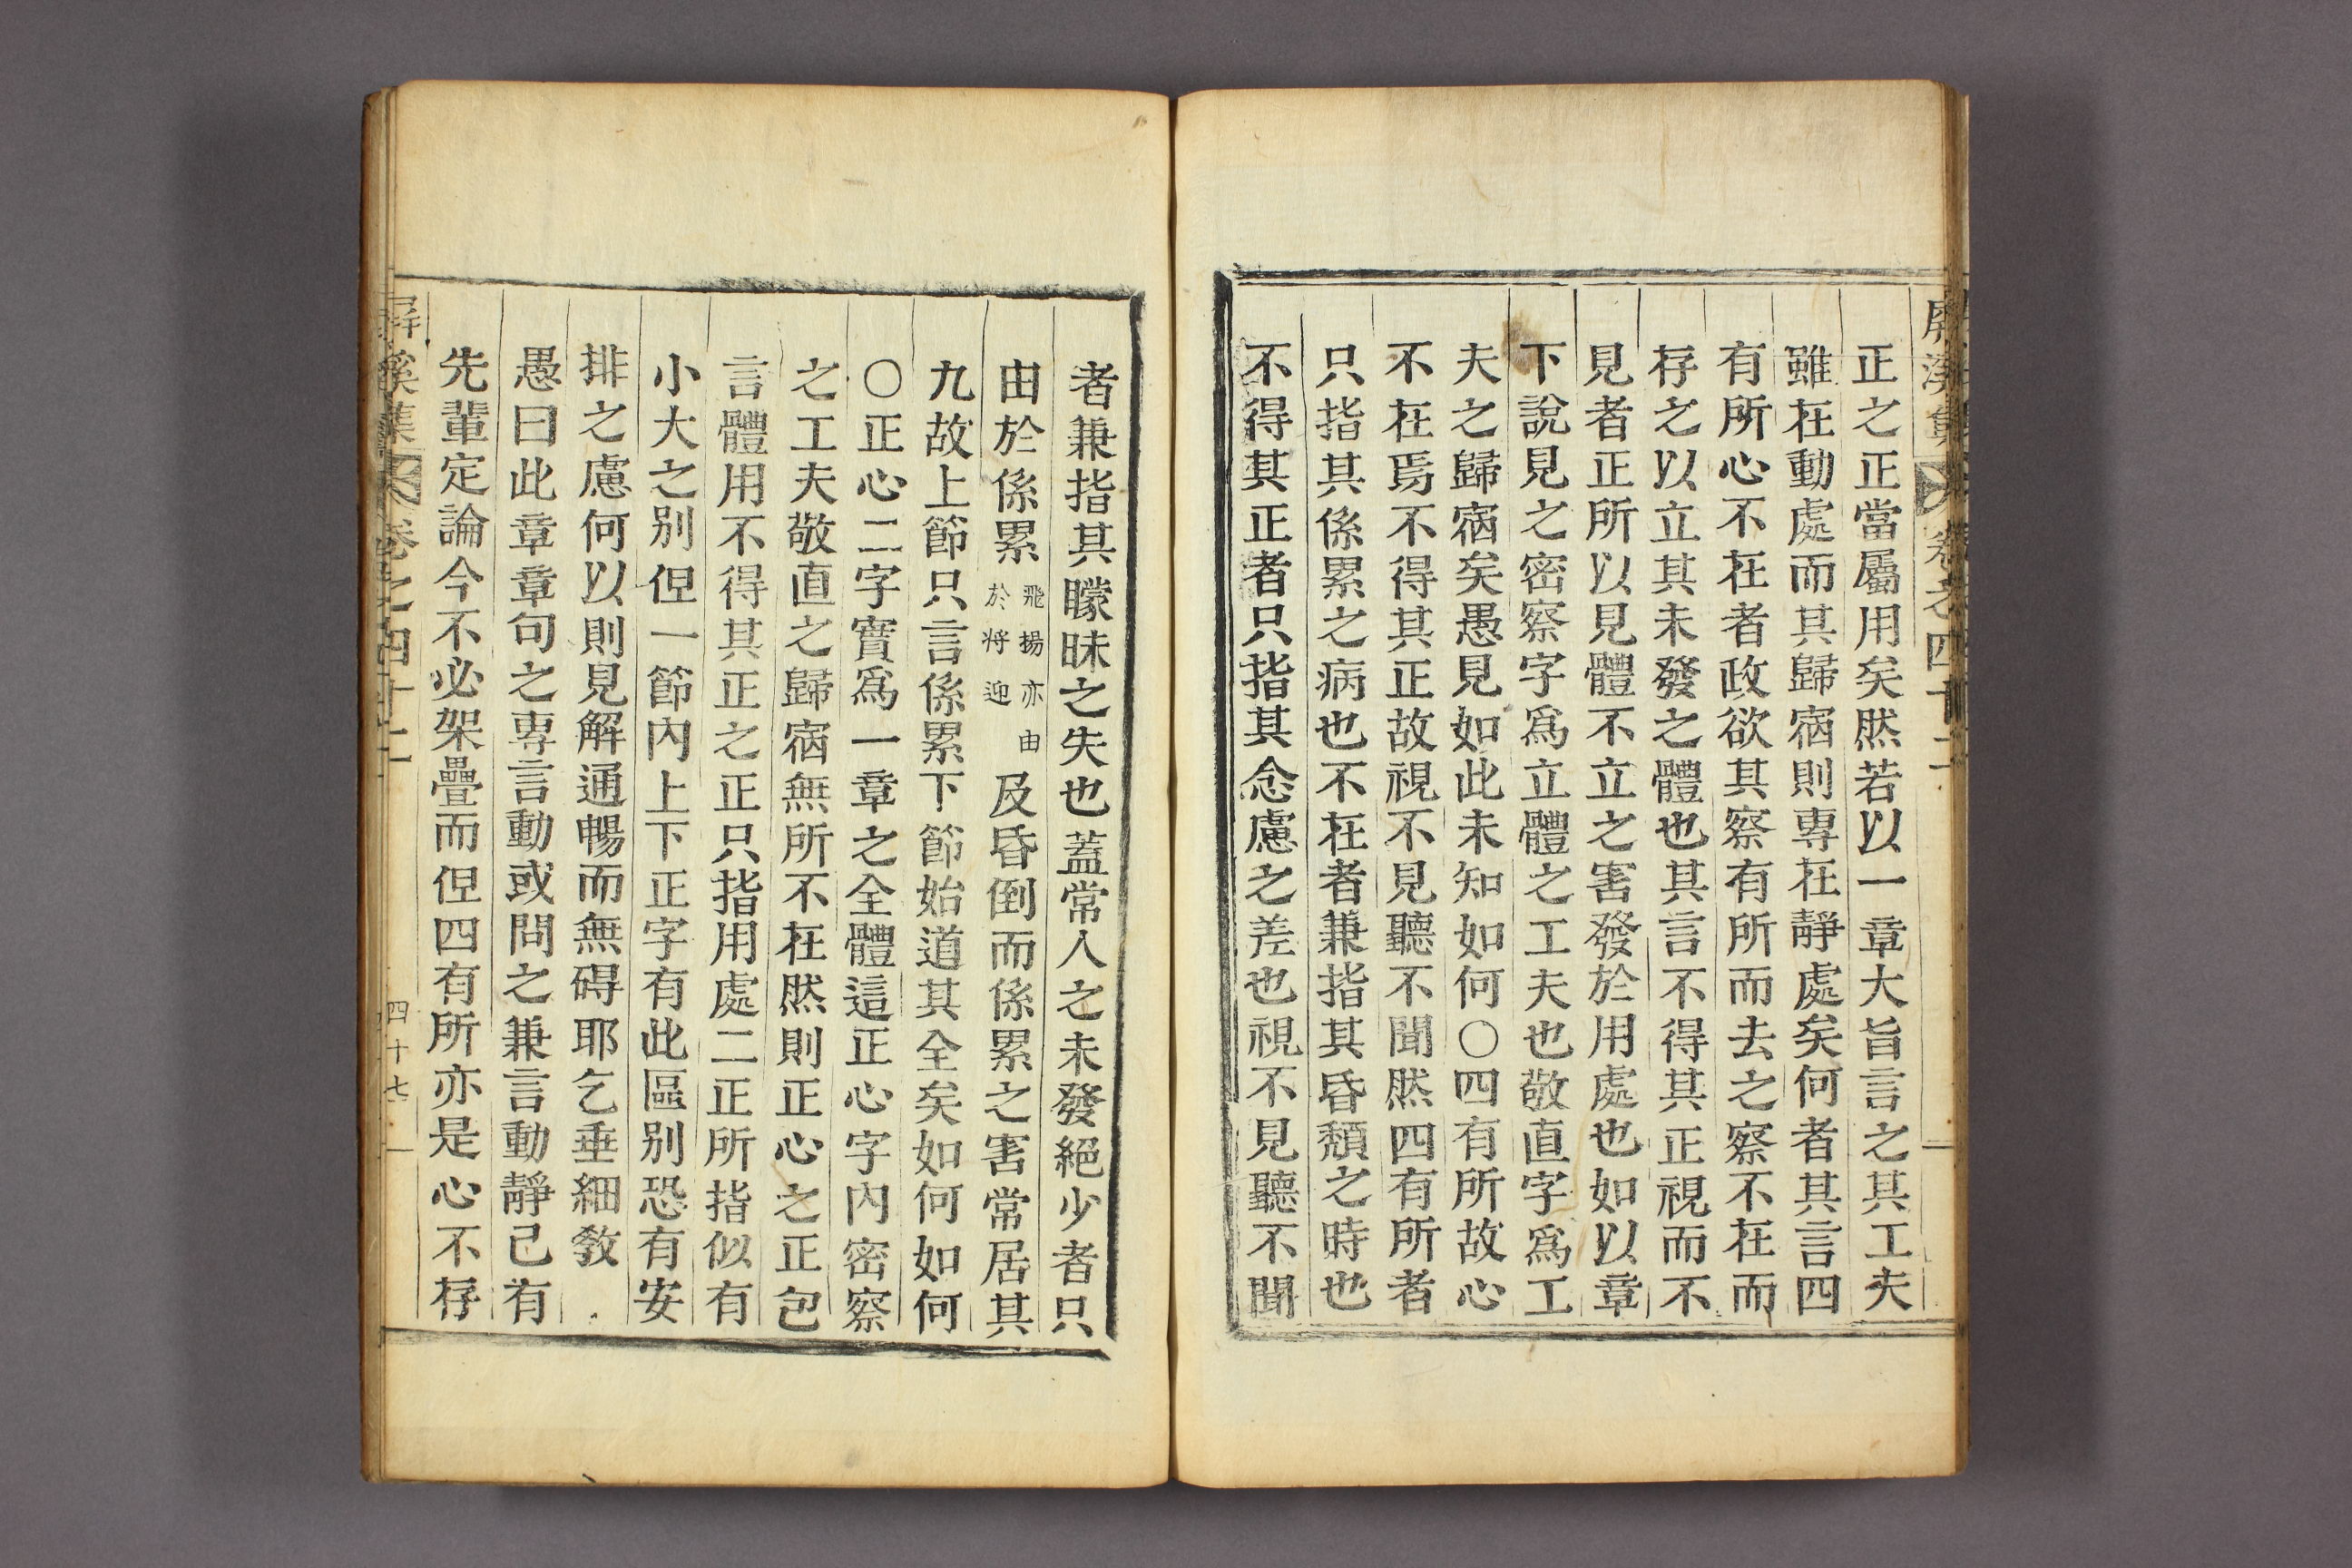 屏溪集 卷之四十二
正之正當屬用矣然若以一章大旨言之其工夫
雖在動處而其歸宿則專在靜處矣何者其言四
有所心不在者政欲其察有所而去之察不在而
存之以立其未發之體也其言不得其正視而不
見者正所以見體不立之害發於用處也如以章
下說見之密察字爲立體之工夫也敬直字爲工
夫之歸宿矣愚見如此未知如何〇四有所故心
不在焉不得其正故視不見聽不聞然四有所者
只指其係累之病也不在者兼指其昏頹之時也
不得其正者只指其念慮之差也視不見聽不聞
者兼指其矇昧之失也蓋常人之未發絕少者只
由於係累飛揚亦由於將迎及昏倒而係累之害常居其
九故上節只言係累下節始道其全矣如何如何
〇正心二字實爲一章之全體這正心字內密察
之工夫敬直之歸宿無所不在然則正心之正包
言體用不得其正之正只指用處二正所指似有
小大之別但一節內上下正字有此區別恐有安
排之慮何以則見解通暢而無碍耶乞垂細敎
愚曰此章章句之專言動或問之兼言動靜已有
先輩定論今不必架疊而但四有所亦是心不存
屛溪集 卷之四十二 四十七